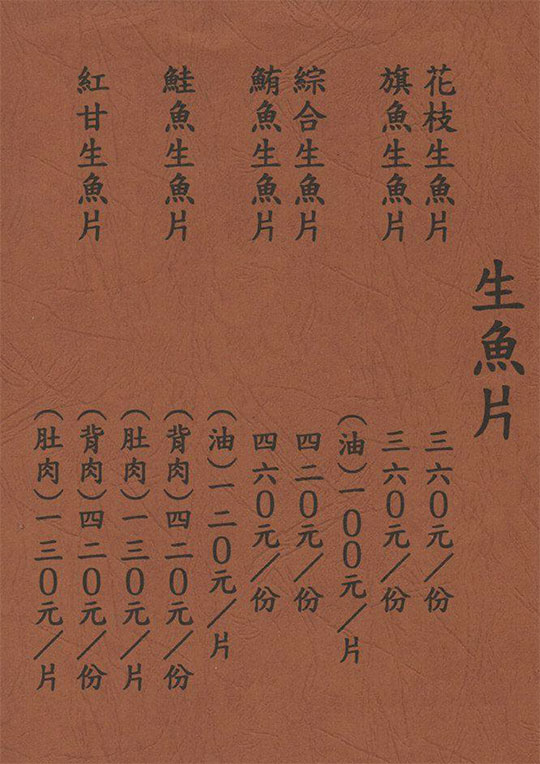 生魚片
花枝生魚片 三六0元／份
旗魚生魚片 三六0元／份
（油）一00元／片
綜合生魚片 四二0元／份
鮪魚生魚片 四六0元／份
（油）一二0元／片
鮭魚生魚片 （背肉）四二0元／份
（肚肉）一三0元／片
紅甘生魚片 （背肉）四二0元／份
（肚肉）一三0元／片